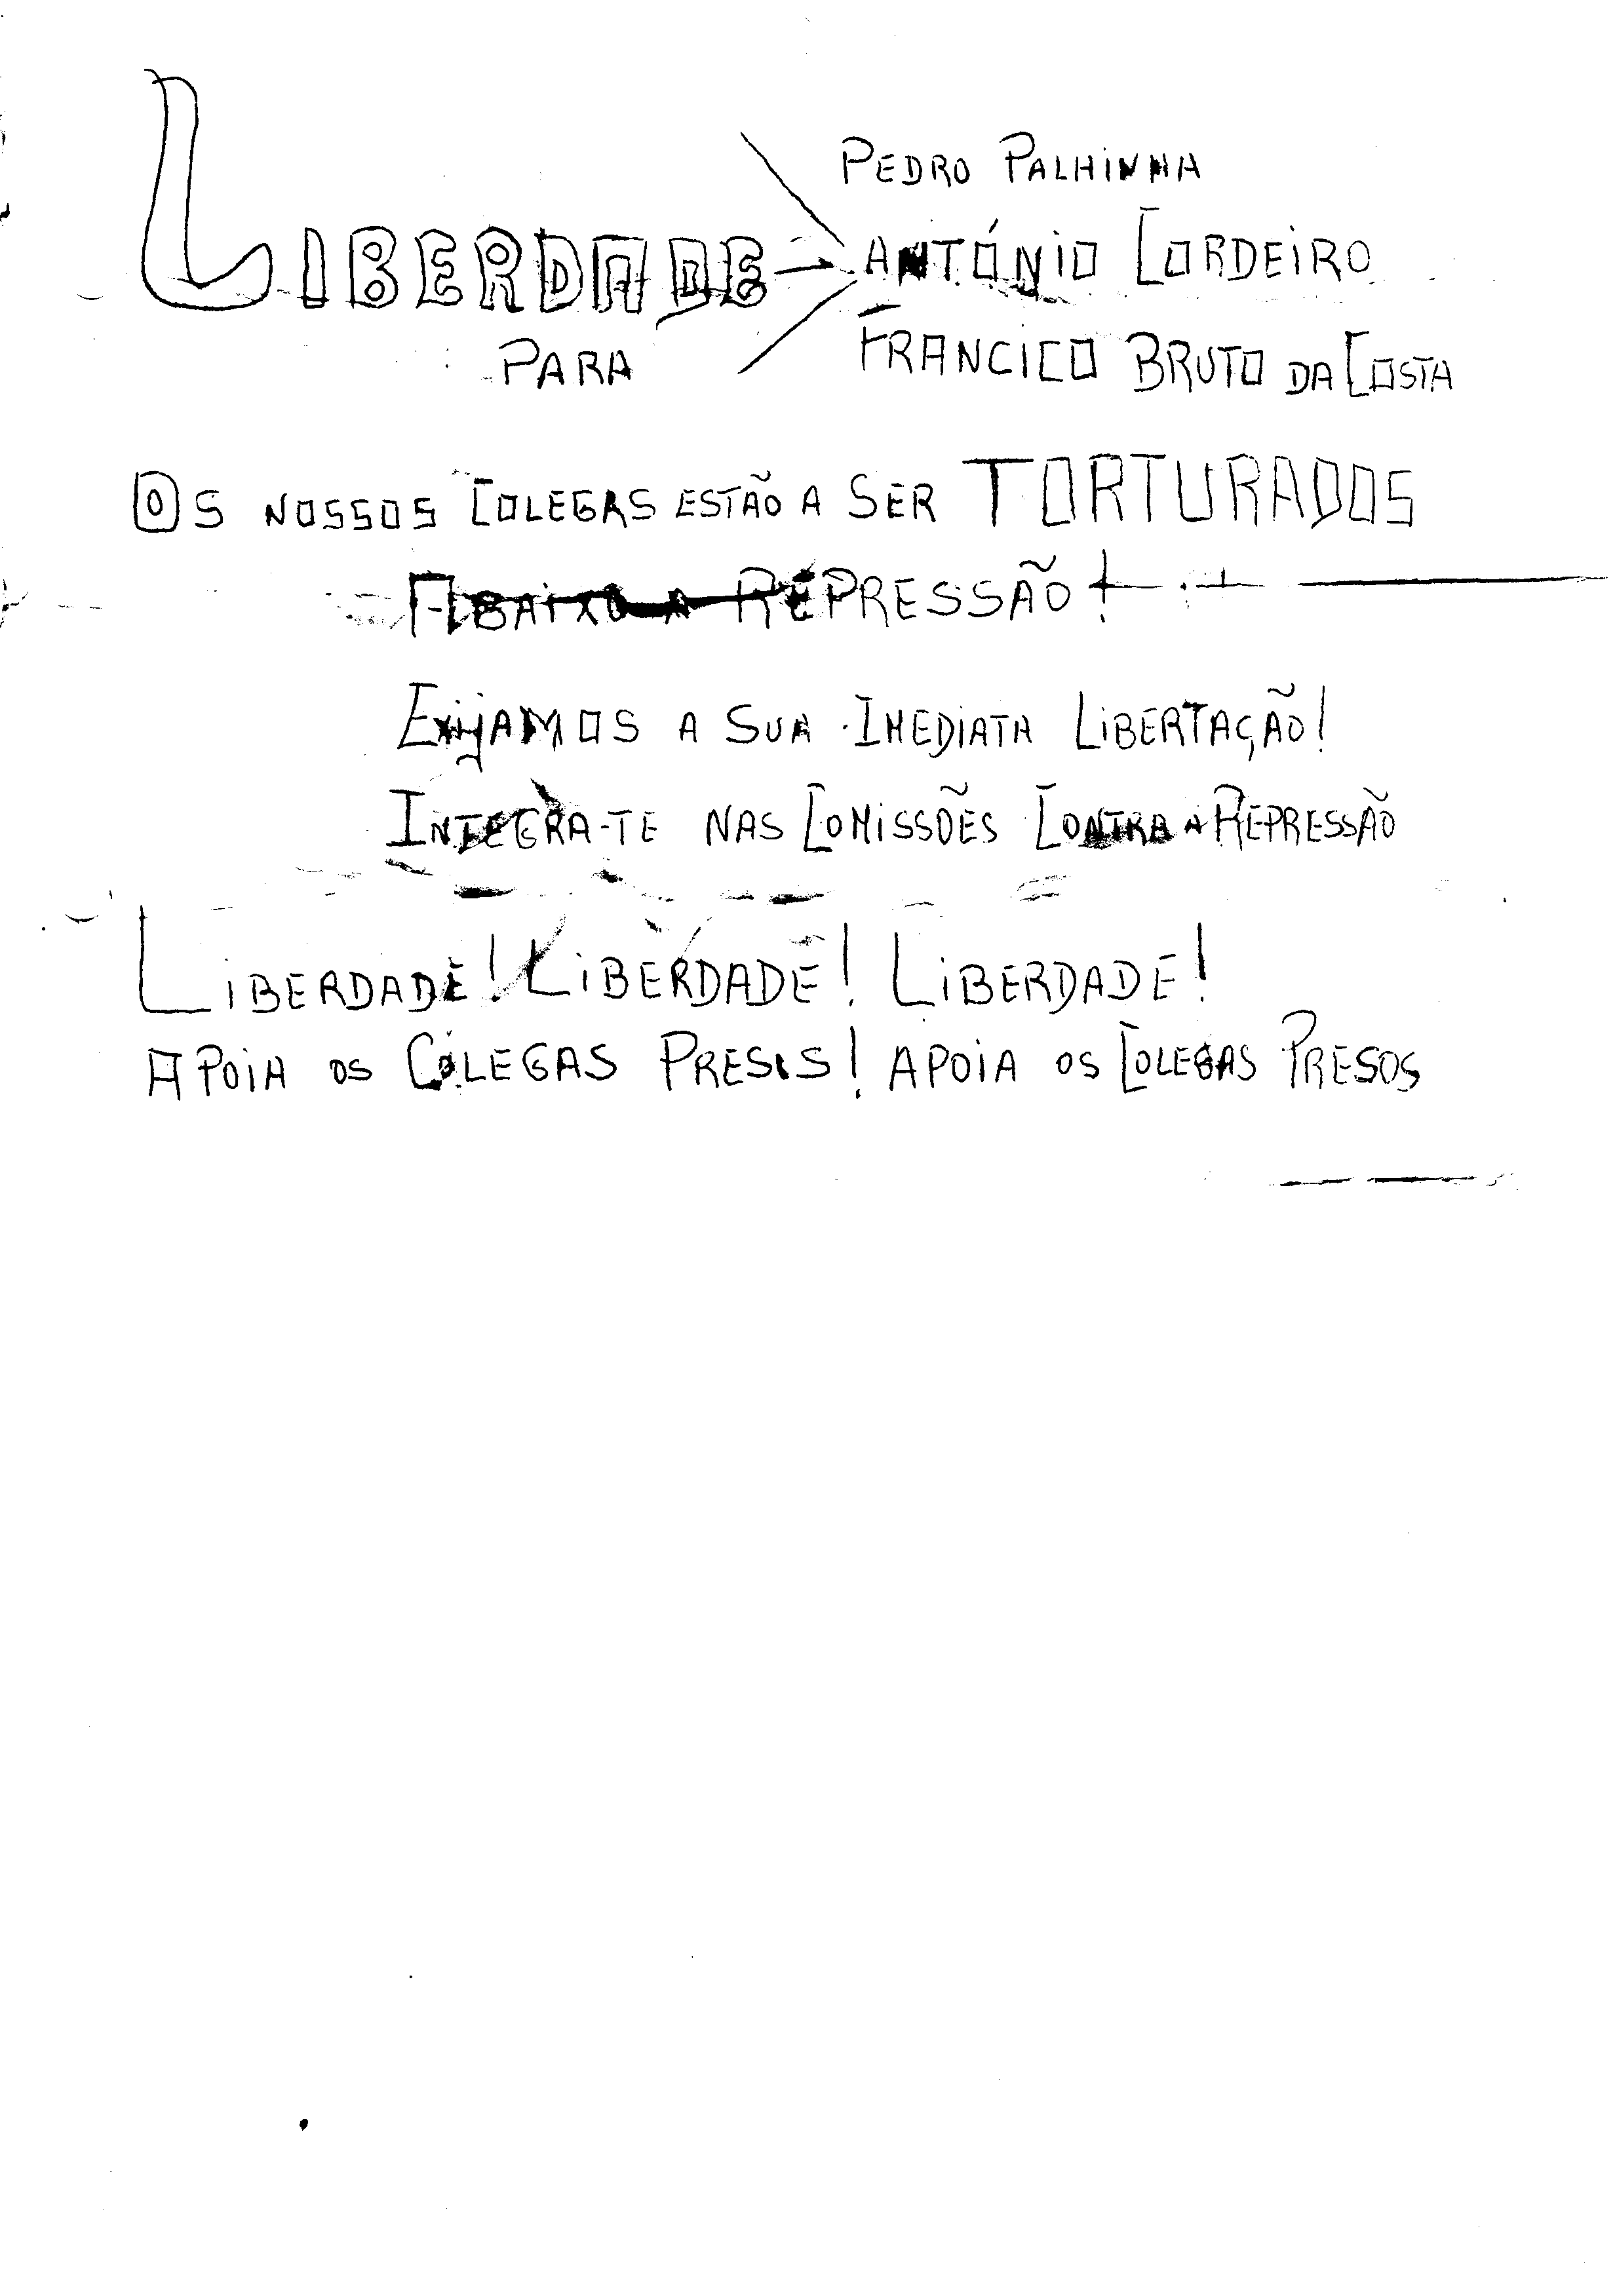 PEDRO PALHINHA
LIBERDADE ANTÓNIO CORDEIRO
PARA FRANCICO BRUTO DA COSTA
OS NOSSOS COLEGAS ESTÃO A SER TORTURADOS
ABAIXO A REPRESSÃO!
EXIJAMOS A SUA IMEDIATA LIBERTAÇÃO!
INTEGRA-TE NAS COMISSÕES CONTRA A REPRESSÃO
LIBERDADE! LIBERDADE! LIBERDADE!
APOIA OS COLEGAS PRESOS! APOIA OS COLEGAS PRESOS